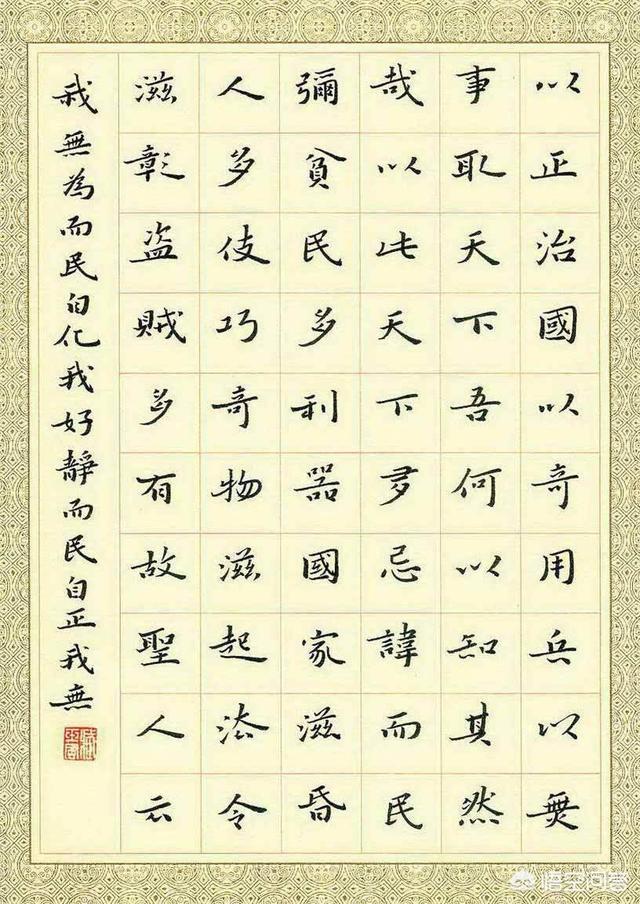 以正治國以奇用兵以無
事取天下吾何以知其然
哉以此天下多忌諱而民
彌貧民多利器國家滋昏
人多伎巧奇物滋起法令
滋彰盗賊多有故聖人云
我無為而民自化我好靜而民自正我無
悟空问答